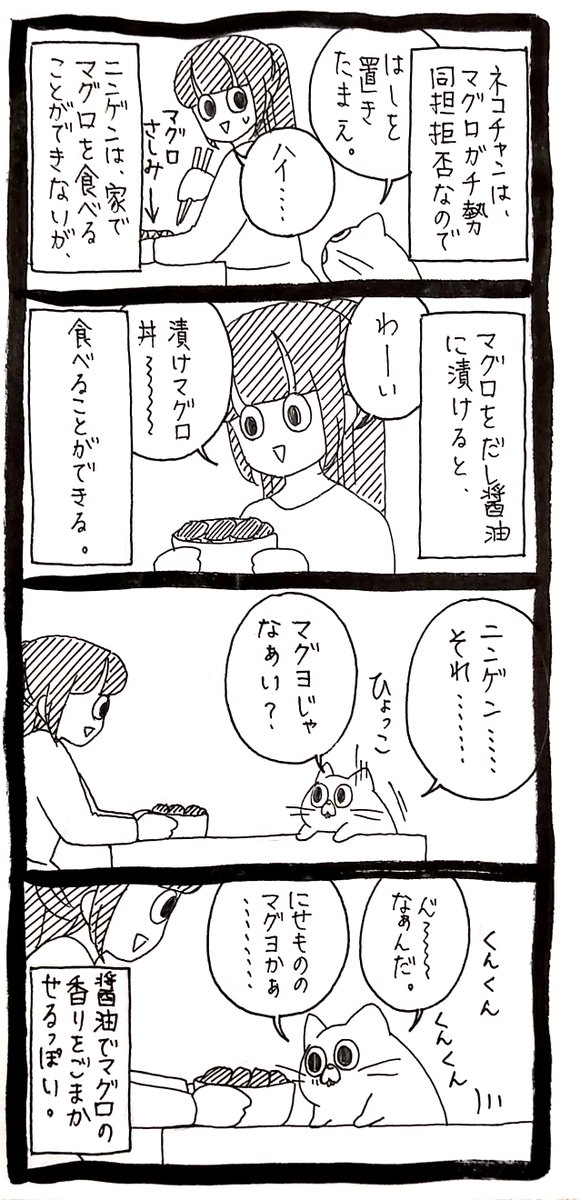 ネコチャンは、
マグロガチ勢
同担拒否なので
はしを
置き
たまえ。
ハイ……
マグロ
さしみ
ニンゲンは、家で
マグロを食べる
ことができないが、
マグロをだし醤油
に漬けると、
わーい
漬けマグロ
丼〜〜〜
食べることができる。
ニンゲン……
それ………
ひょっこ
マグヨじゃ
なぁい？
くんくん
くんくん
ん〜〜〜
なぁんだ。
にせものの
マグヨかぁ
………
醤油でマグロの
香りをごまか
せるっぽい。